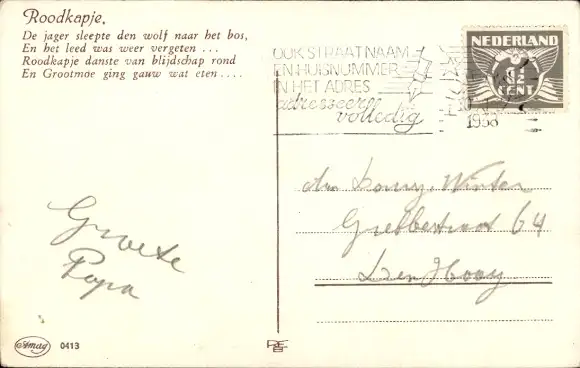 Roodkapje.
De jager sleepte den wolf naar het bos,
En het leed was weer vergeten ...
Roodkapje danste van blijdschap rond
En Grootmoe ging gauw wat eten ....
OOK STRAATNAAM
EN HUISNUMMER
IN HET ADRES
adresseert
volledig
1938
NEDERLAND
CENT
Groete
Papa
Winter
Grebbestraat 64
Den Haag
Amag 0413